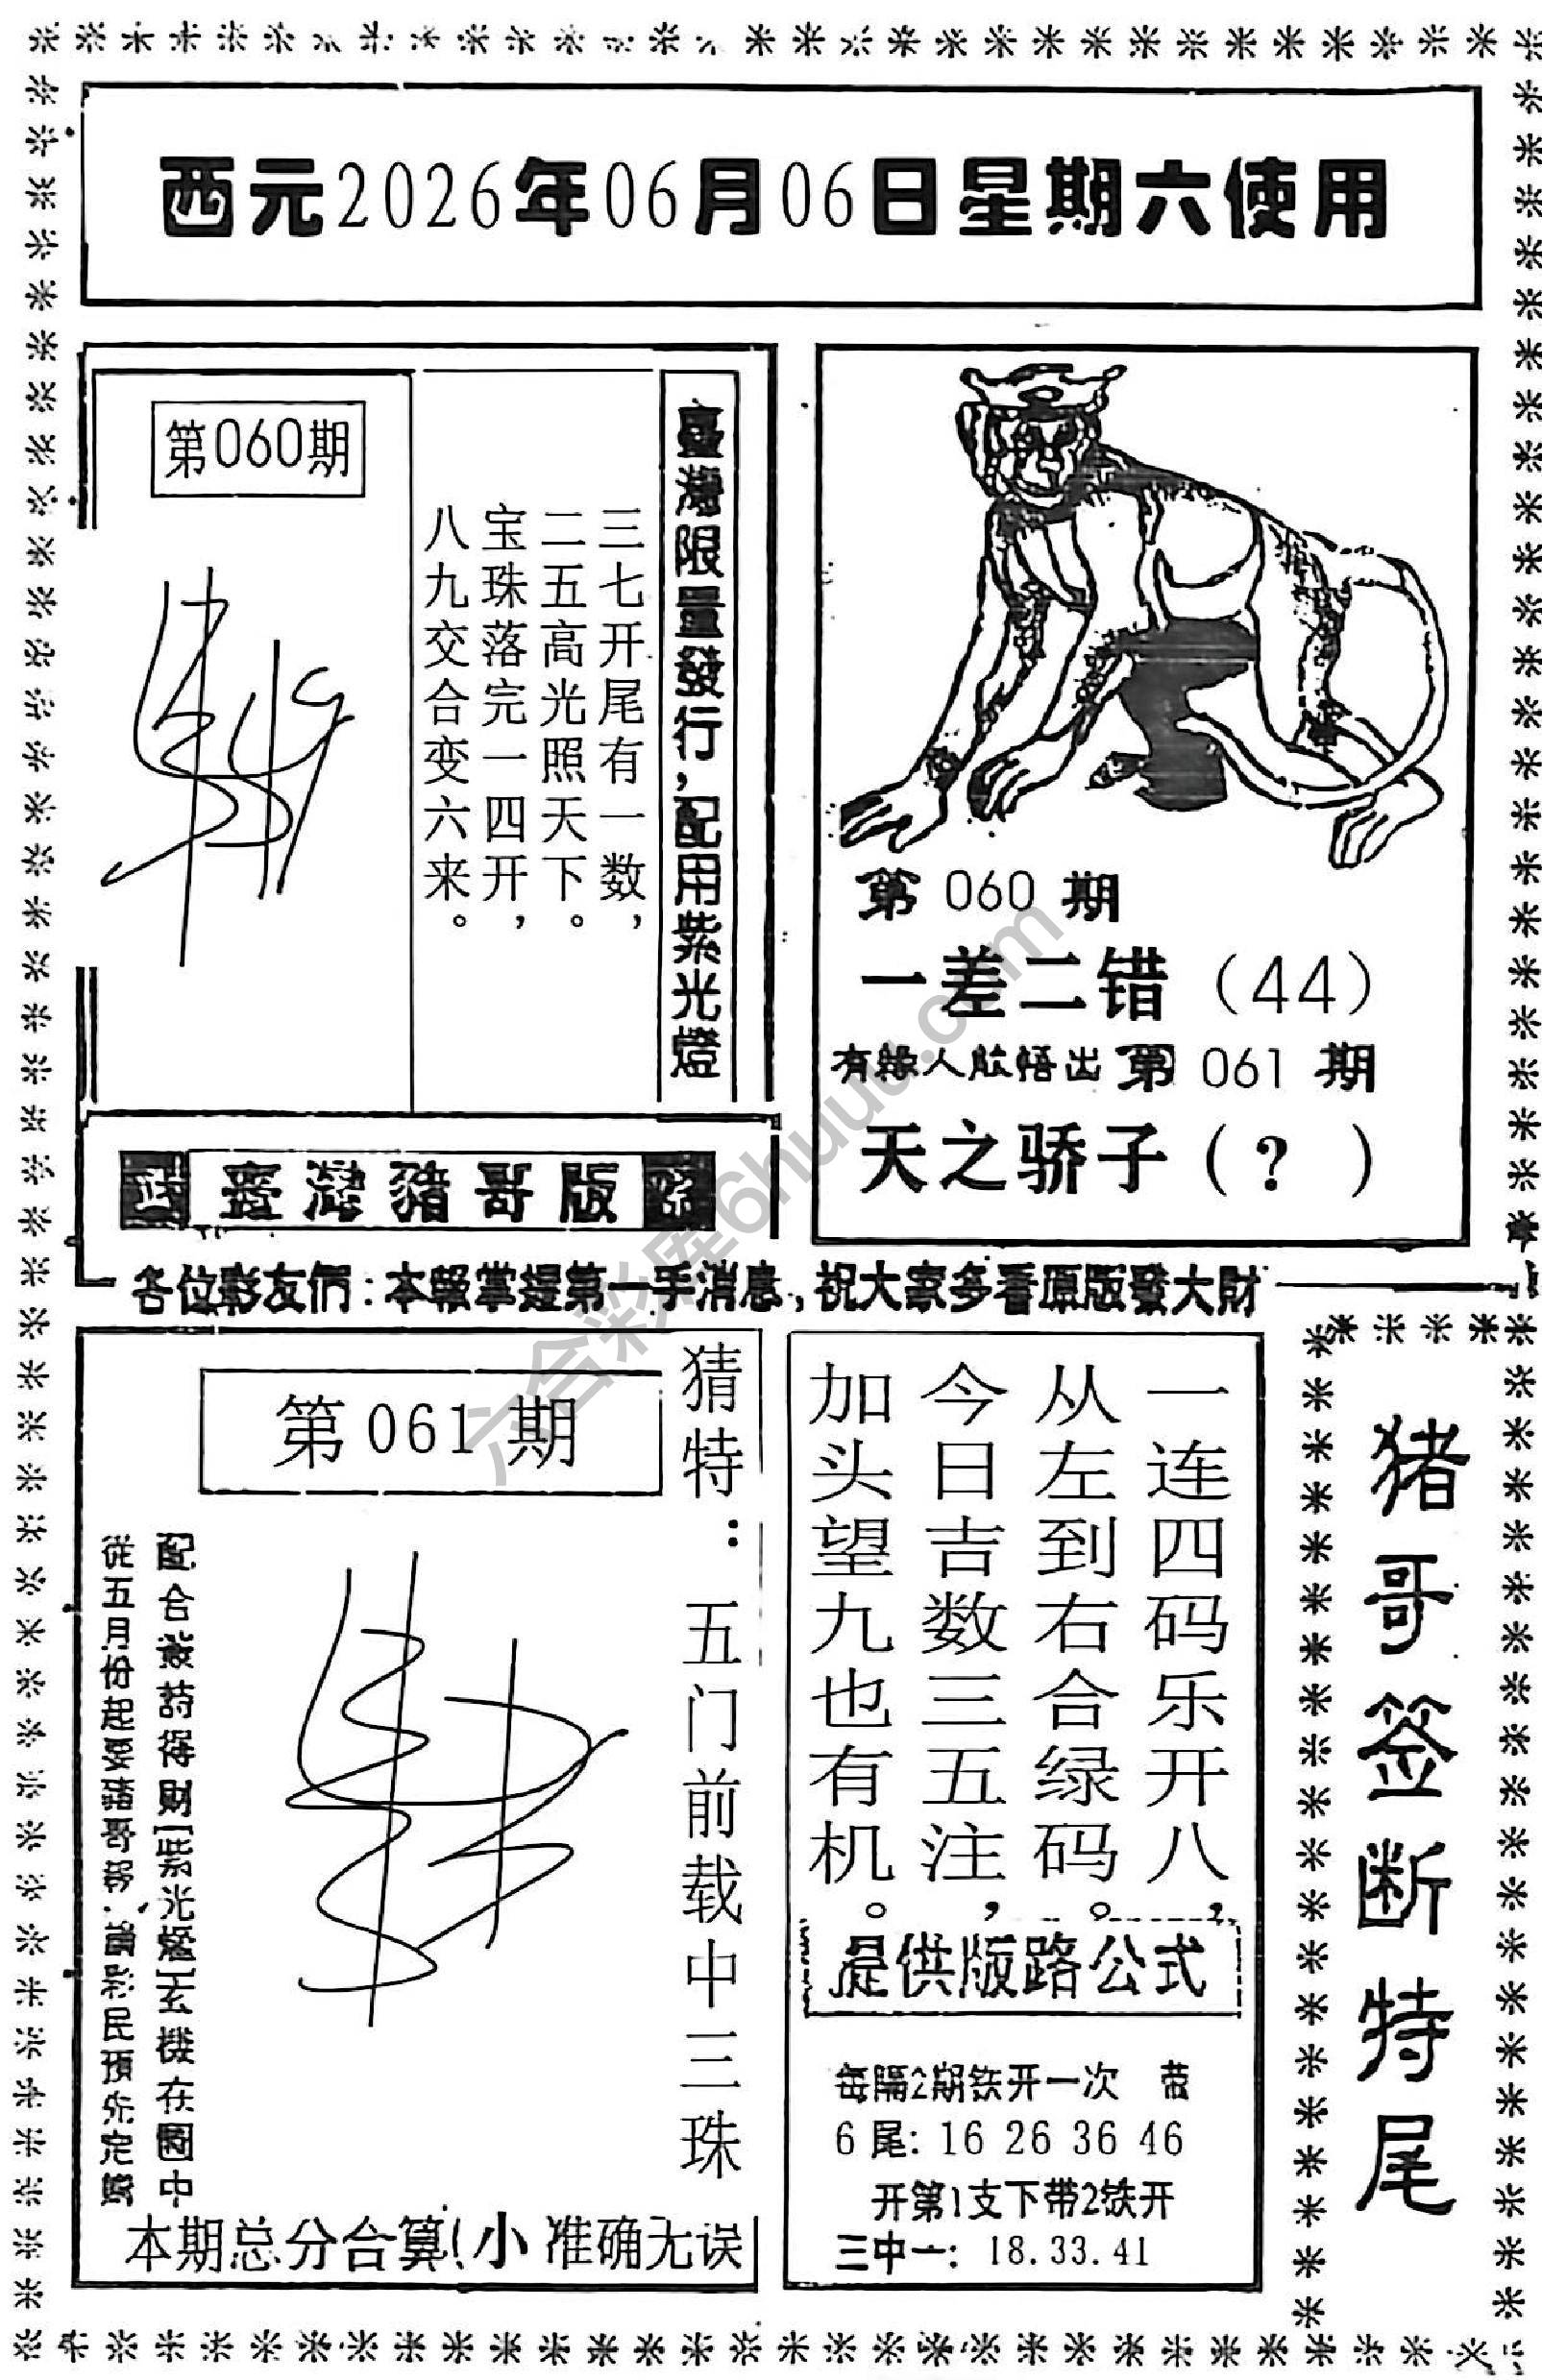 西元2026年06月06日星期六使用
第060期
三七开尾有一数，
二五高光照天下。
宝珠落完一四开，
八九交合变六来。
臺灣限量發行，配用紫光燈
臺灣豬哥版
第 060 期
一差二错（44）
有緣人能悟出 第 061 期
天之骄子（？）
各位彩友們：本報掌握第一手消息，祝大家多看原版發大財
第 061 期
猜特：五门前载中三珠
配合 詩得財 紫光燈 玄機在圖中
從五月份起要豬哥報，請彩民預先定購
本期总分合算 小 准确无误
一连四码乐开八，
从左到右合绿码。
今日吉数三五注，
加头望九也有机。
提供版路公式
每隔2期铁开一次 带
6 尾：16 26 36 46
开第1支下带2铁开
三中一：18.33.41
猪哥签断特尾
六合彩库6huuu.com